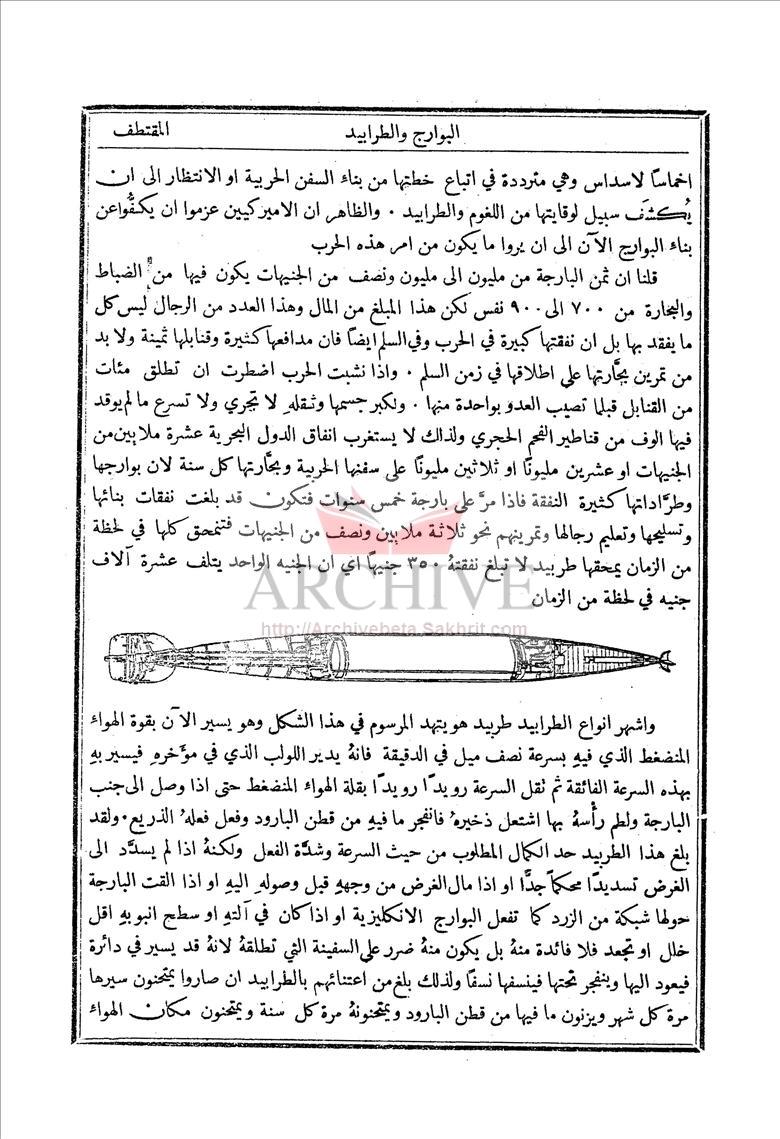 البوارج والطرابيد
المقتطف
اخماسًا لاسداس وهي مترددة في اتباع خطتها من بناء السفن الحربية او الانتظار الى ان
يُكشَف سبيل لوقايتها من اللغوم والطرابيد . والظاهر ان الاميركيين عزموا ان يكفُّوا عن
بناء البوارج الآن الى ان يروا ما يكون من امر هذه الحرب
قلنا ان ثمن البارجة من مليون الى مليون ونصف من الجنيهات يكون فيها من الضباط
والبحارة من ٧٠٠ الى ٩٠٠ نفس لكن هذا المبلغ من المال وهذا العدد من الرجال ليس كل
ما يفقد بها بل ان نفقتها كبيرة في الحرب وفي السلم ايضًا فان مدافعها كثيرة وقنابلها ثمينة ولا بد
من تمرين بحَّارتها على اطلاقها في زمن السلم . واذا نشبت الحرب اضطرت ان تطلق مئات
من القنابل قبلما تصيب العدو بواحدة منها . ولكبر جسمها وثقلهِ لا تجري ولا تسرع ما لم يوقد
فيها الوف من قناطير الفحم الحجري ولذلك لا يستغرب انفاق الدول البحرية عشرة ملايين من
الجنيهات او عشرين مليونًا او ثلاثين مليونًا على سفنها الحربية وبحَّارتها كل سنة لان بوارجها
وطرَّاداتها كثيرة النفقة فاذا مرَّ على بارجة خمس سنوات فتكون قد بلغت نفقات بنائها
وتسليحها وتعليم رجالها وتمرينهم نحو ثلاثة ملايين ونصف من الجنيهات فتنمحق كلها في لحظة
من الزمان يمحقها طربيد لا تبلغ نفقتهُ ٣٥٠ جنيهًا اي ان الجنيه الواحد يتلف عشرة آلاف
جنيه في لحظة من الزمان
ARCHIVE
http://Archivebeta.Sakhrit.com
واشهر انواع الطرابيد طربيد هويتهد المرسوم في هذا الشكل وهو يسير الآن بقوة الهواء
المنضغط الذي فيهِ بسرعة نصف ميل في الدقيقة فانهُ يدير اللولب الذي في مؤخرهِ فيسير بهِ
بهذه السرعة الفائقة ثم تقل السرعة رويدًا رويدًا بقلة الهواء المنضغط حتى اذا وصل الى جنب
البارجة ولطم رأسهُ بها اشتعل ذخيرهُ فانفجر ما فيهِ من قطن البارود وفعل فعلهُ الذريع . ولقد
بلغ هذا الطربيد حد الكمال المطلوب من حيث السرعة وشدَّة الفعل ولكنهُ اذا لم يسدَّد الى
الغرض تسديدًا محكمًا جدًّا او اذا مال الغرض من وجههِ قبل وصولهِ اليهِ او اذا القت البارجة
حولها شبكة من الزرد كما تفعل البوارج الانكليزية او اذا كان في آلتهِ او سطح انبوبهِ اقل
خلل او تجعد فلا فائدة منهُ بل يكون منهُ ضرر على السفينة التي تطلقهُ لانهُ قد يسير في دائرة
فيعود اليها وينفجر تحتها فينسفها نسفًا ولذلك بلغ من اعتنائهم بالطرابيد ان صاروا يمتحنون سيرها
مرة كل شهر ويزنون ما فيها من قطن البارود ويمتحنونهُ مرة كل سنة ويمتحنون مكان الهواء